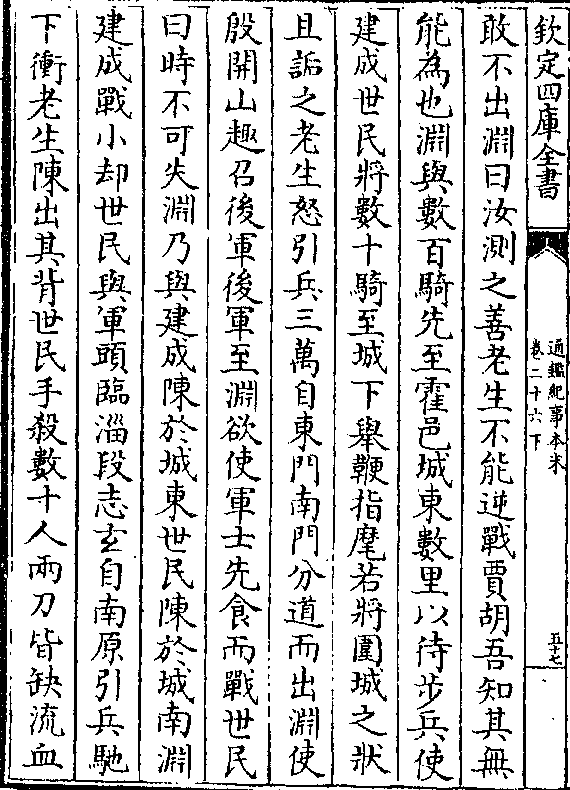 欽定四庫全書
通鑑紀事本末
卷二十六下
五十七
敢不出淵曰汝測之善老生不能逆戰賈胡吾知其無
能為也淵與數百騎先至霍邑城東數里以待步兵使
建成世民將數十騎至城下舉鞭指麾若將圍城之狀
且詬之老生怒引兵三萬自東門南門分道而出淵使
殷開山趣召後軍後軍至淵欲使軍士先食而戰世民
曰時不可失淵乃與建成陳於城東世民陳於城南淵
建成戰小却世民與軍頭臨淄段志玄自南原引兵馳
下衝老生陳出其背世民手殺數十人兩刀皆缺流血